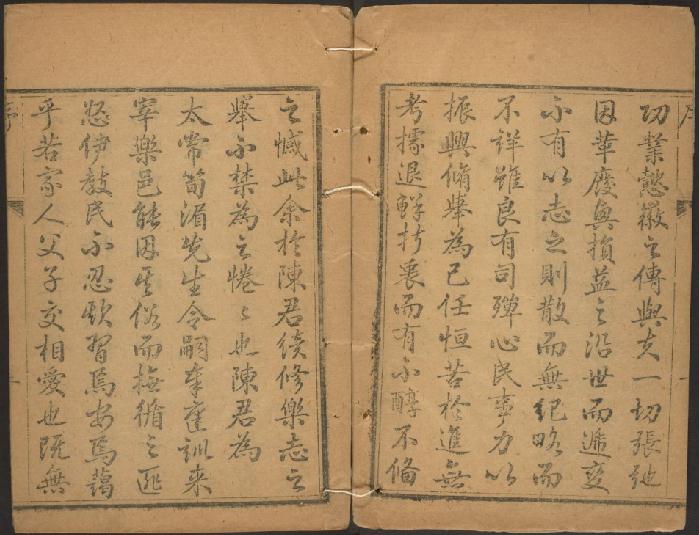 功業懿徽之傳與夫一切張弛
因革廢興損益之沿世而遞变
不有以志之則散而無紀略而
不詳雖良有司殫心民事力以
振興脩舉為己任恒苦於進無
考據退鮮折衷而有不醇不俻
之憾此余於陳君续修樂志之
舉不禁為之惓之也陳君為
太常筍湄先生令嗣奉庭訓来
宰樂邑能因其俗而撫循之匪
怒伊教民不忍欺習焉安焉藹
乎若家人父子交相愛也既無